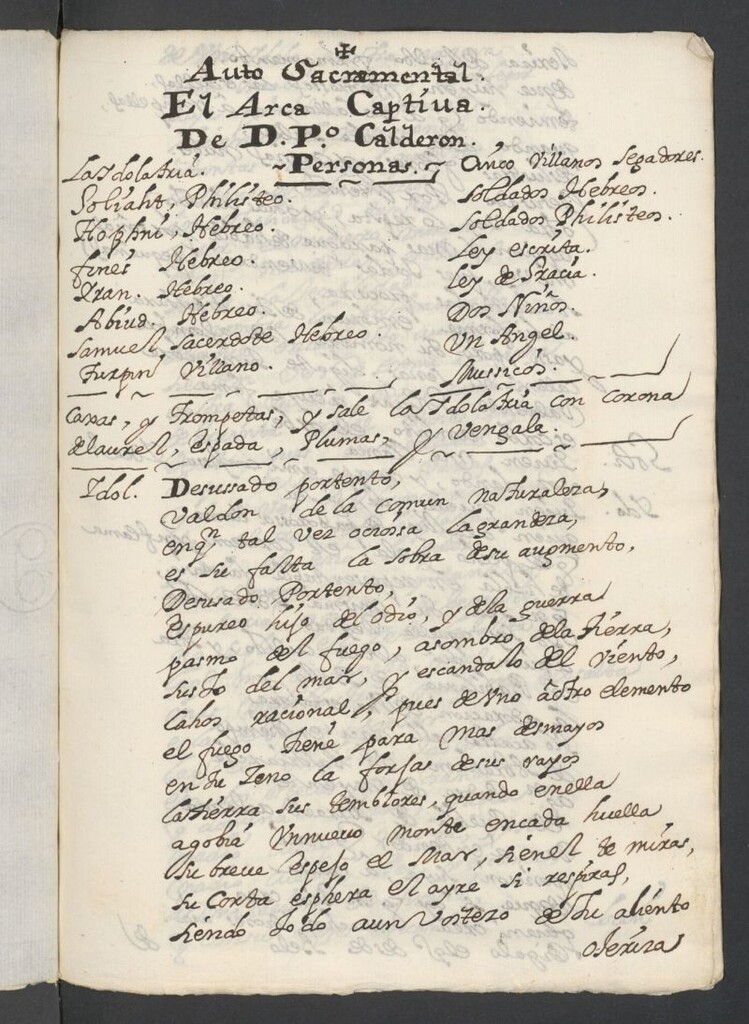 ✠
Auto Sacramental.
El Arca Captiua.
De D. P.º Calderon.
~Personas.~
La Idolatria.
Goliaht, Philisteo.
Hophni, Hebreo.
fineś Hebreo.
Hebreo.
Abiud. Hebreo.
Samuel sacerdote Hebreo.
Turpin Villano.
Cinco Villanos segadores.
Soldados Hebreos.
Soldados Philisteos.
Ley escrita.
Ley de Gracia.
Dos Niños.
Un Angel.
Mussicos.
Caxas, y Trompetas, y sale la Idolatria con corona
de laurel, espada, Plumas, y Vengala.
Idol. Desussado portento,
Valdon de la comun naturaleza,
en qn tal vez ociossa la grandeza,
es su falta la sobra de su augmento,
Desusado Portento,
espureo hijo del odio, y de la guerra
pasmo del fuego, asombro de la tierra,
susto del mar, y escandalo del viento,
Cahos racional, pues de Uno a otro elemento
el fuego tiene para mas desmayos
en tu seno la forjas de sus rayos
la tierra sus temblores, quando en ella
agobia Un nuevo monte en cada huella
su breve espejo el Mar, si en el te miras,
su Corta esphera el ayre si respiras,
siendo todo aun de tu aliento